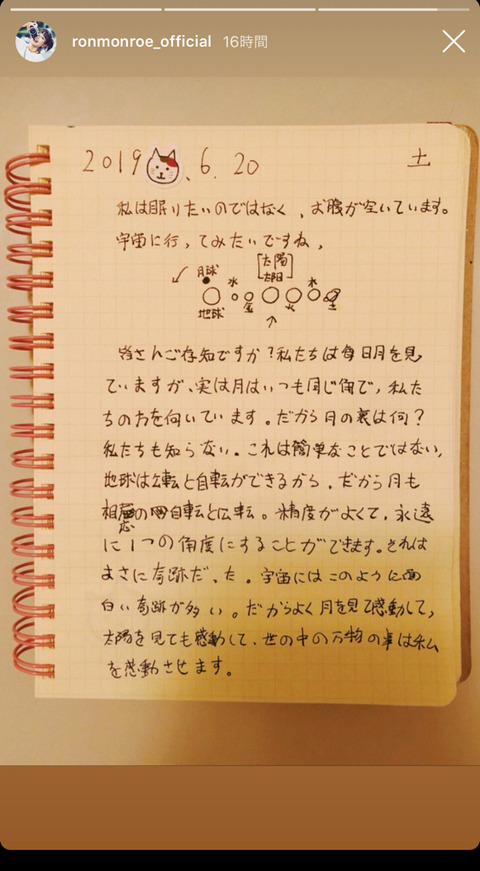 ronmonroe_official 16時間
2019.6.20 土
私は眠りたいのではなく、お腹が空いています。
宇宙に行ってみたいですね、
月球 水 [太陽] 木
地球 金 火 土
皆さんご存知ですか?私たちは每日月を見
ていますが、実は月はいつも同じ角で,私た
ちの方を向いています。だから月の裏は何?
私たちも知らない。これは簡単なことではない,
地球は公転と自転ができるから、だから月も
相応の自転と公転。精度がよくて、永遠
に1つの角度にすることができます。それは
まさに奇跡だった。宇宙にはこのように面
白い奇跡が多い。だからよく月を見て感動して,
太陽を見ても感動して、世の中の万物の事は私
を感動させます。